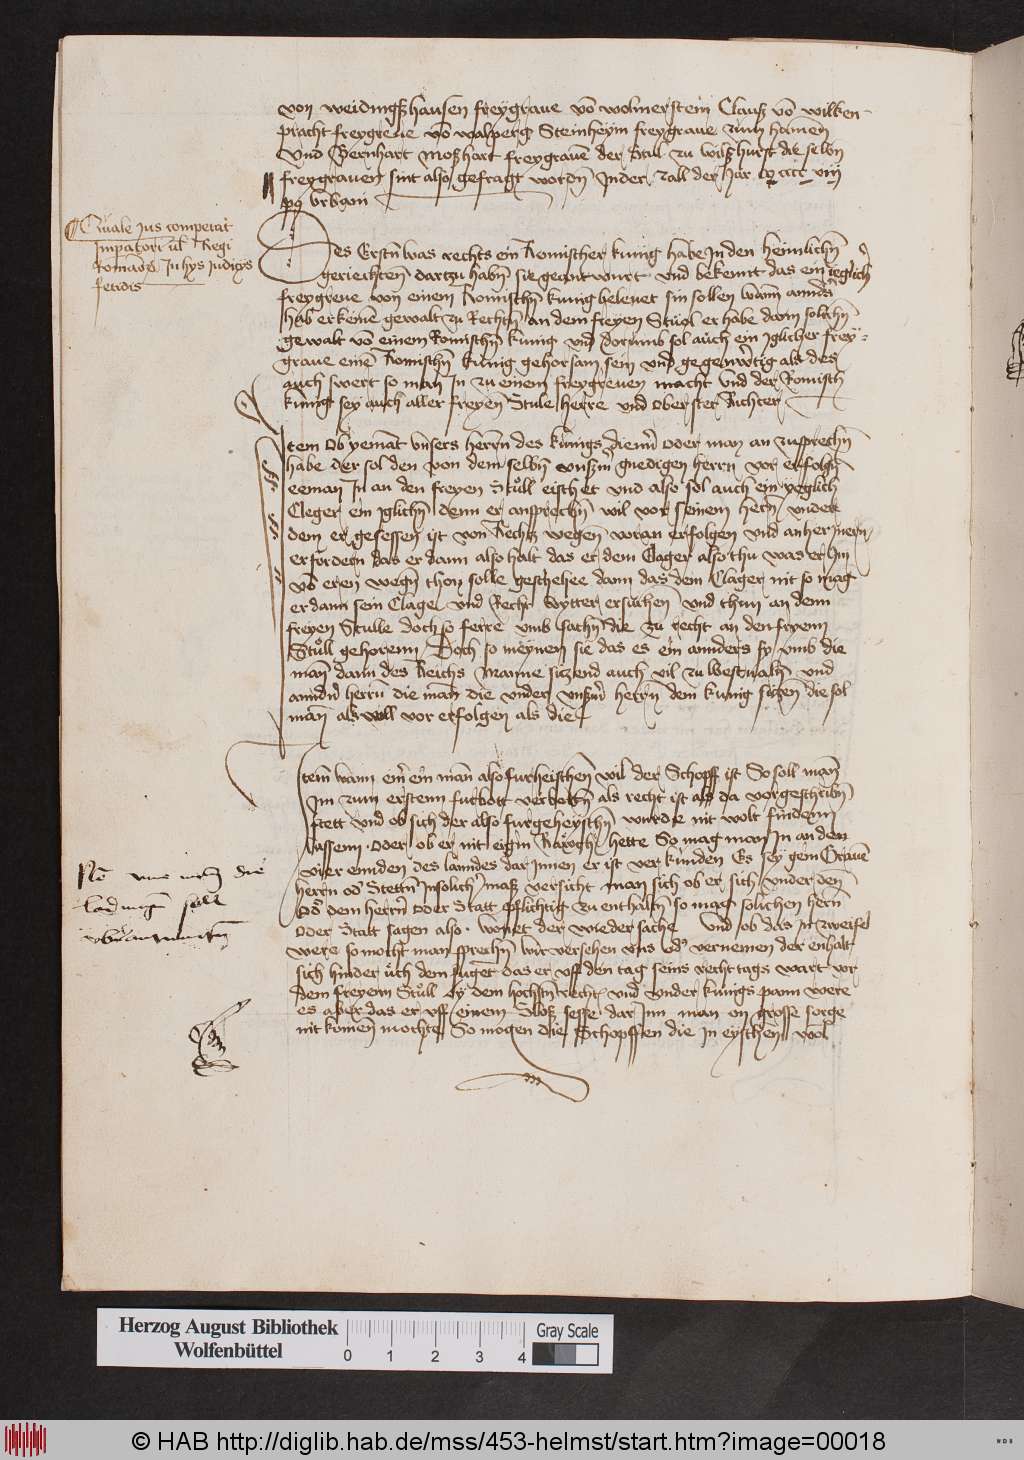 von weidingßhausen freygraue võ wolmerstein Clauß võ wilken
pracht freygreue võ walperg Steinheym freygraue zum hamen
Vnd Bernhart Moßhart freygrauẽ der Stul zu wilßhurst die selbñ
freygrauen sint also gefragt wordñ Jn der zall der Jar cccc viij
Quale Jus competat
Jmpatori ul Regi
romanor̃ Jn hys Judicys
fetidis
Des Erstñ was rechts ein Romischer kunig habe Jn den heimlichñ
geriechten dartzu habñ sie geantwurt vnd bekennt das ein yeglich
freygreue von einem Romischñ kunig belenet sin sollen wann annders
hab er keine gewalt zu Rechtñ an dem freyen Stuol er habe dann solichñ
gewalt võ einem Romischñ kunig vnd dorumb sol auch ein Jglicher frey
graue einẽ Romischñ kunig gehorsam sein vnd gegenw̃tig als des
auch swert so man Jn zu einem freygreuen macht vnd der Romisch
kunig sey auch aller freyen Stule herre vnd oberster Richter
Jtem Ob yemãt vnsers herrñ des kunigs dienñ oder man an zusprechñ
habe der sol den von dem selbñ vnßm̃ gnedigen herrn vor erfolgñ
ee man Jn an den freyen Stuͦll eischet vnd also sol auch ein yeglich
Cleger ein Jglichñ denn er ansprechñ wil vor seinem herñ vnder
dem er gesessen ist von Rechtz wegen voran erfolgen vnd an her Jnern
erfordern das er dann also halt das er dem Clager also thu was er Jm
võ eren wegñ thon solle geschehee dann das dem Clager nit so mag
er dann sein Clage vnd Recht wytter ersuchen vnd thun an denn
freyen Stulle doch so ferre vmb sachñ die zu recht an den fryenn
Stuͦll gehorenn Doch so meynen sie das es ein annders sy vmb die
man dann des Reichs Manne sitzend auch vil zu Westualñ vnd
annders herrn die man die vnder vnßm̃ herrñ dem kunig sitzen die sol
man als woll vor erfolgen als die
Jtem wann em̃ ein man also furheischen wil der Schopff ist So soll man
Jm zum erstenn furbott verbottñ als recht ist als da vorgeschribñ
stett vnd ob sich der also furgeheyschñ wurde nit wolt findenn
lassenn oder ob er nit eigin Rauogh hette So mag man Jn an den
vier ennden des lanndes dar Jnnen er ist verkunden Es sey gem Grauẽ
herrn od Stettñ Jnsolicher maß versicht man sich ob er sich vnder den
Od dem herrñ oder Statt pflichtig zu enthaltñ so mag solichen herñ
oder Statt sagen also wonet der wieder sache Vnd ob das in zweifel
were so mocht man sprechñ wir versehen vns od vernemen der enhalt
sich hinder uͤch dem fuget das er vff den tag seins recht tags wart vor
dem freyenn Stuͦll By dem hochstñ recht vnd vnder kunigs pann were
es aber das er vff einem Sloß sesse dar Jnn man on grosse sorge
nit komẽ mochte So mogen die Schopffen die Jn eyschen wol
die
ladung soll
Herzog August Bibliothek
Wolfenbüttel
0 1 2 3 4
Gray Scale
© HAB http://diglib.hab.de/mss/453-helmst/start.htm?image=00018